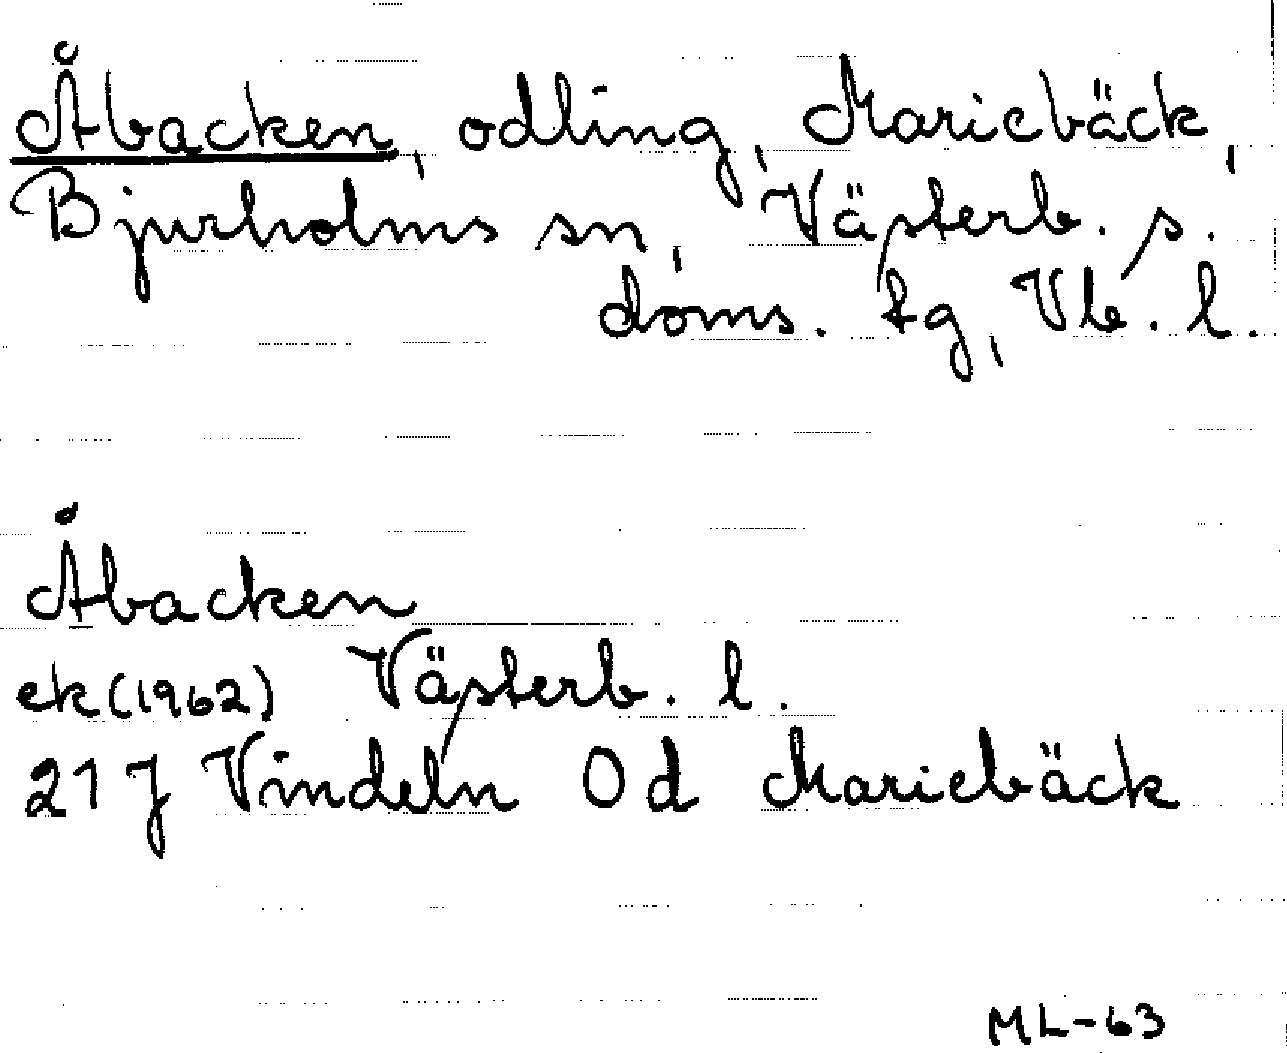 Åbacken, odling, Mariebäck,
Bjurholms sn, Västerb. s.
doms. tg, Vb. l.
Åbacken
ek (1962) Västerb. l.
21 J Vindeln Od Mariebäck
ML-63